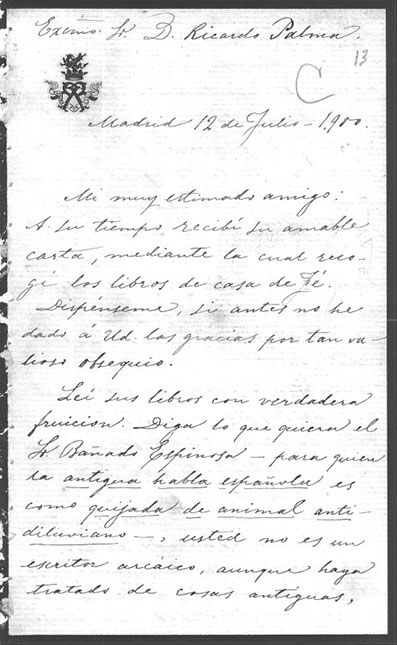 Excmo. Sr. D. Ricardo Palma.
13
C
Madrid 12 de Julio - 1900.
Mi muy estimado amigo:
A su tiempo, recibí su amable
carta, mediante la cual reco-
gí los libros de casa de Fé.
Dispénseme, si antes no he
dado á Ud. las gracias por tan va-
lioso obsequio.
Leí sus libros con verdadera
fruicion. Diga lo que quiera el
Sr Bañado Espinosa - para quien
la antigua habla española es
como quijada de animal anti-
diluviano -, usted no es un
escritor arcáico, aunque haya
tratado de cosas antiguas,